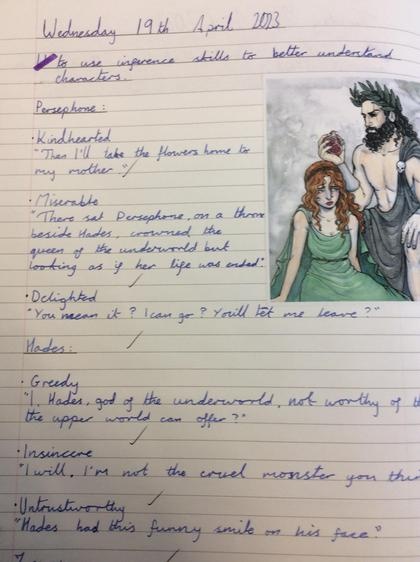 Wednesday 19th April 2023
to use inference skills to better understand
characters.
Persephone:
• Kindhearted
"Then I'll take the flowers home to
my mother."
• Miserable
"There sat Persephone, on a throne
beside Hades, crowned the
queen of the underworld but
looking as if her life was ended".
• Delighted
"You mean it? I can go? You'll let me leave?"
Hades:
• Greedy
"I, Hades, god of the underworld, not worthy of
the upper world can offer?"
• Insincere
"I will, I'm not the cruel monster you
• Untrustworthy
"Hades had this funny smile on his face."